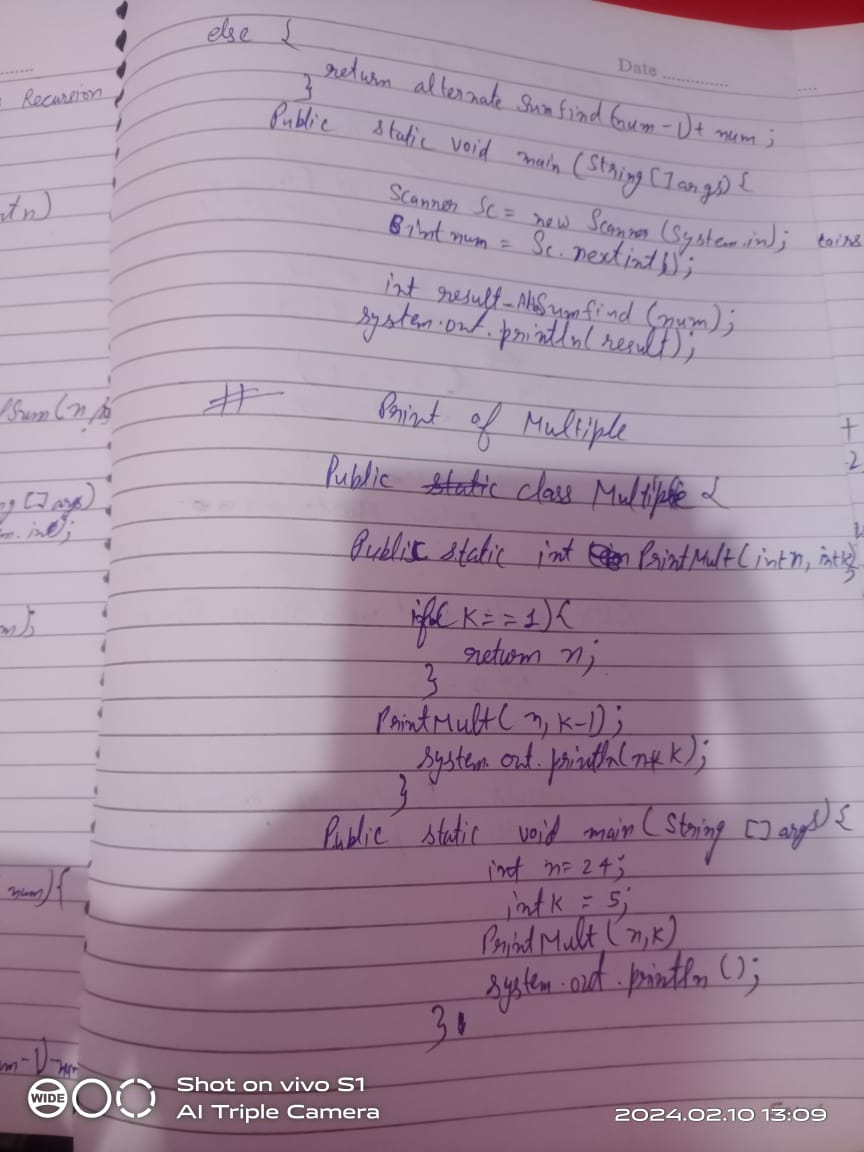 else {
Date
Recursion
return alternate Sumfind (num-1)+ num ;
}
Public static void main (String [] args) {
Scanner Sc = new Scanner (System.in);
int num = Sc. nextint();
int result-AltSumfind (num);
system.out. println( result);
# Print of Multiple
Public static class Multiple {
Public static int PrintMult(int n, int k)
if( K==1){
return n;
}
PrintMult( n, k-1);
system. out. println(n*k);
}
Public static void main (String [] args) {
int n= 24;
int k = 5;
PrintMult (n,k)
system.out.println ();
}
num){
WIDE
Shot on vivo S1
AI Triple Camera
2024.02.10 13:09